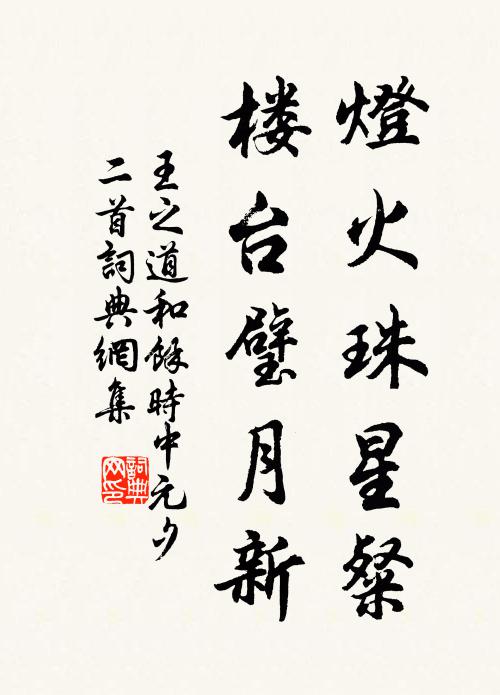 燈火珠星粲
楼台璧月新
王之道和餘時中元夕
二首詞典網集
詞典网印